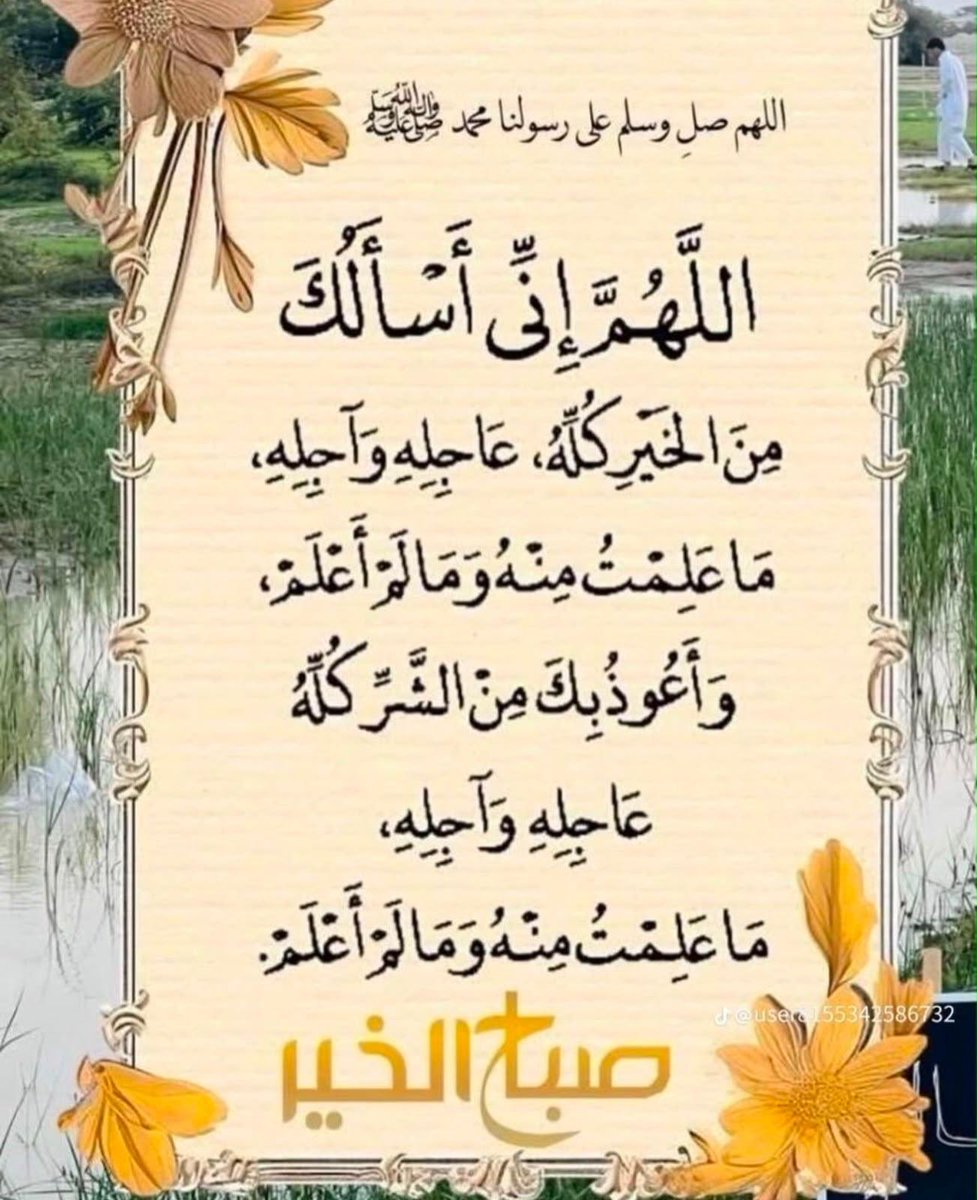 اللهم صلِ وسلم على رسولنا محمد ﷺ
اللَّهُمَّ إِنِّي أَسْأَلُكَ
مِنَ الْخَيْرِ كُلِّهُ، عَاجِلِهِ وَآجِلِهِ،
مَا عَلِمْتُ مِنْهُ وَمَا لَمْ أَعْلَمْ،
وَأَعُوذُ بِكَ مِنْ الشَّرِّ كُلِّهُ
عَاجِلِهِ وَآجِلِهِ،
مَا عَلِمْتُ مِنْهُ وَمَا لَمْ أَعْلَمْ.
صباح الخير